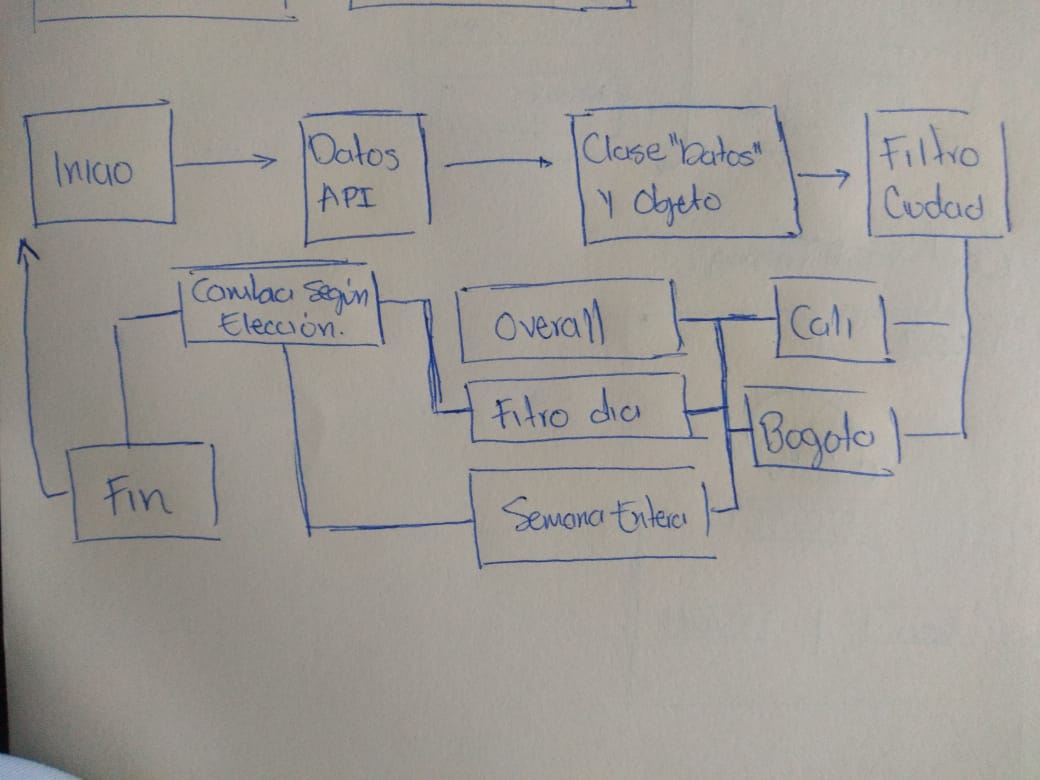 Inicio
Datos
API
Clase "Datos"
y Objeto
Filtro
Ciudad
Según
Elección.
Overall
Cali
Fitro dia
Bogota
Fin
Semana Entera